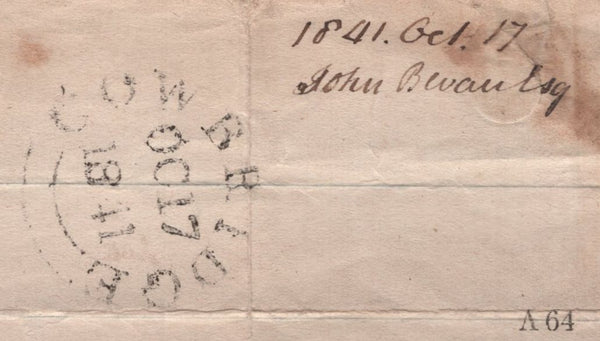 1841. Oct. 17
John Bevan Esq
COWBRIDGE
OC17
1841
A 64